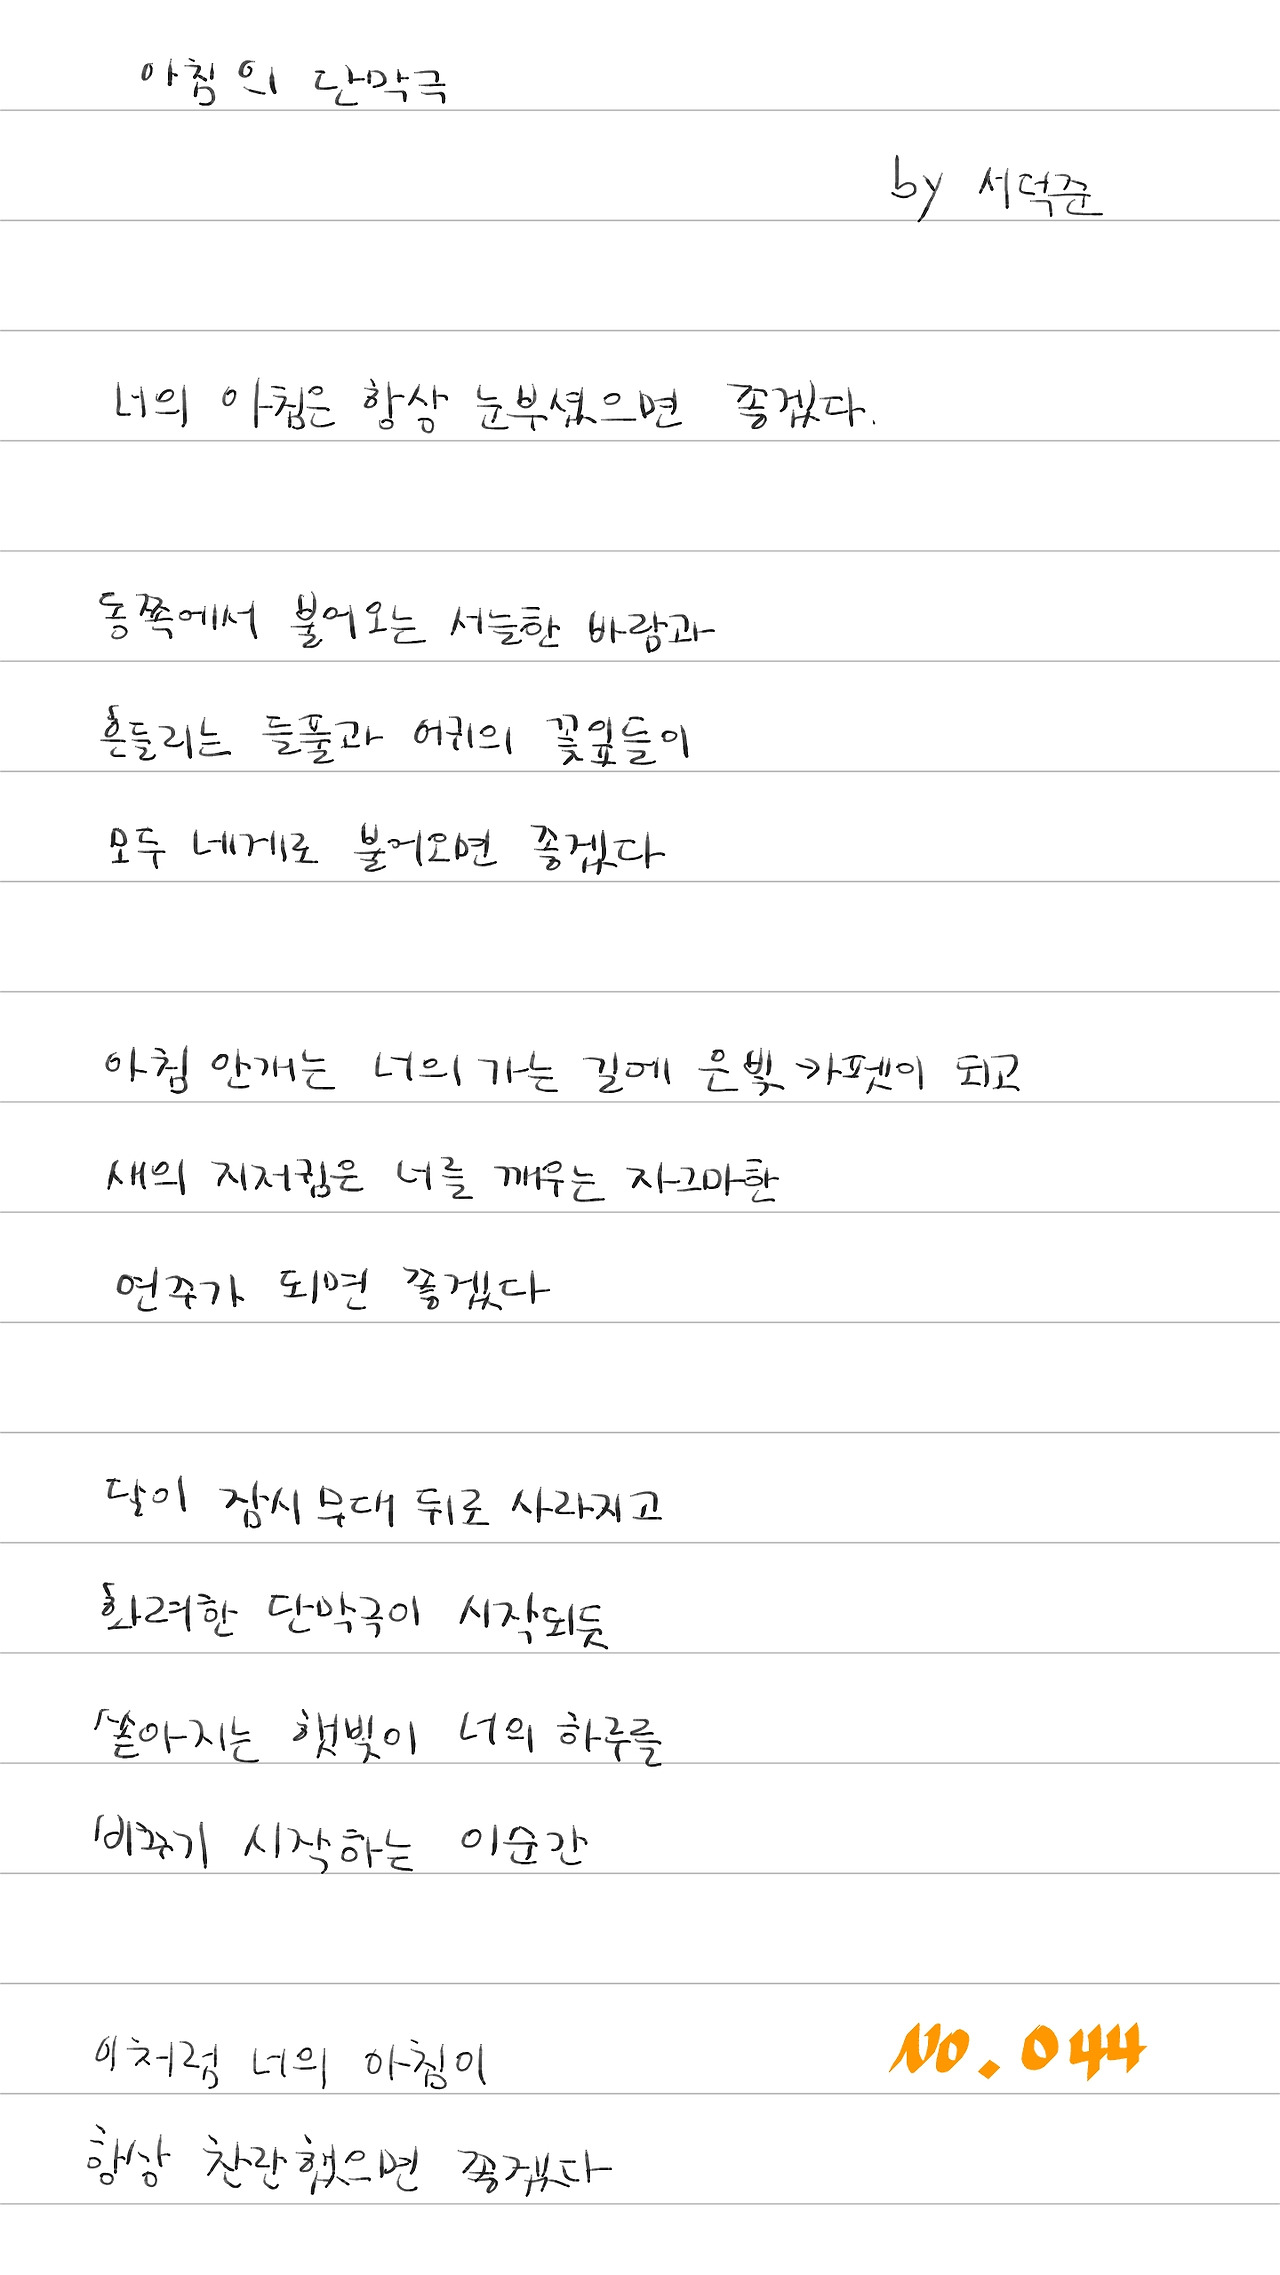 아침의 단막극
by 서덕준
너의 아침은 항상 눈부셨으면 좋겠다.
동쪽에서 불어오는 서늘한 바람과
흔들리는 들풀과 어귀의 꽃잎들이
모두 네게로 불어오면 좋겠다
아침 안개는 너의 가는 길에 은빛 카펫이 되고
새의 지저귐은 너를 깨우는 자그마한
연주가 되면 좋겠다
달이 잠시 무대 뒤로 사라지고
화려한 단막극이 시작되듯
쏟아지는 햇빛이 너의 하루를
비추기 시작하는 이순간
이처럼 너의 아침이
NO. 044
항상 찬란했으면 좋겠다